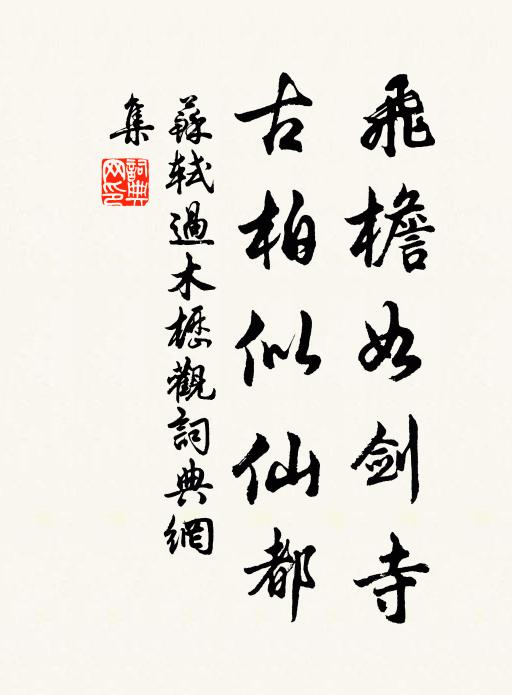 飛檐如劍寺
古柏似仙都
蘇軾過木櫪觀詞典網
集
詞典
网印